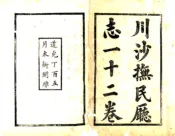 川沙撫民廳
志一十二卷
道光丁酉五
月開雕